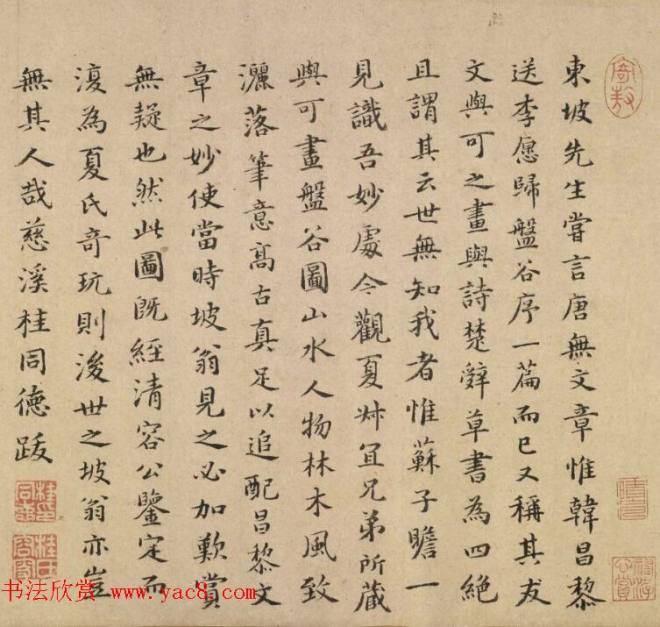 東坡先生嘗言唐無文章惟韓昌黎
送李愿歸盤谷序一篇而已又稱其友
文與可之畫與詩楚辭草書為四絕
且謂其云世無知我者惟蘇子瞻一
見識吾妙處今觀夏叔宜兄弟所藏
與可畫盤谷圖山水人物林木風致
灑落筆意高古真足以追配昌黎文
章之妙使當時坡翁見之必加歎賞
無疑也然此圖既經清容公鑒定而
復為夏氏奇玩則後世之坡翁亦豈
無其人哉慈溪桂同德跋
书法欣赏 www.yac8.com